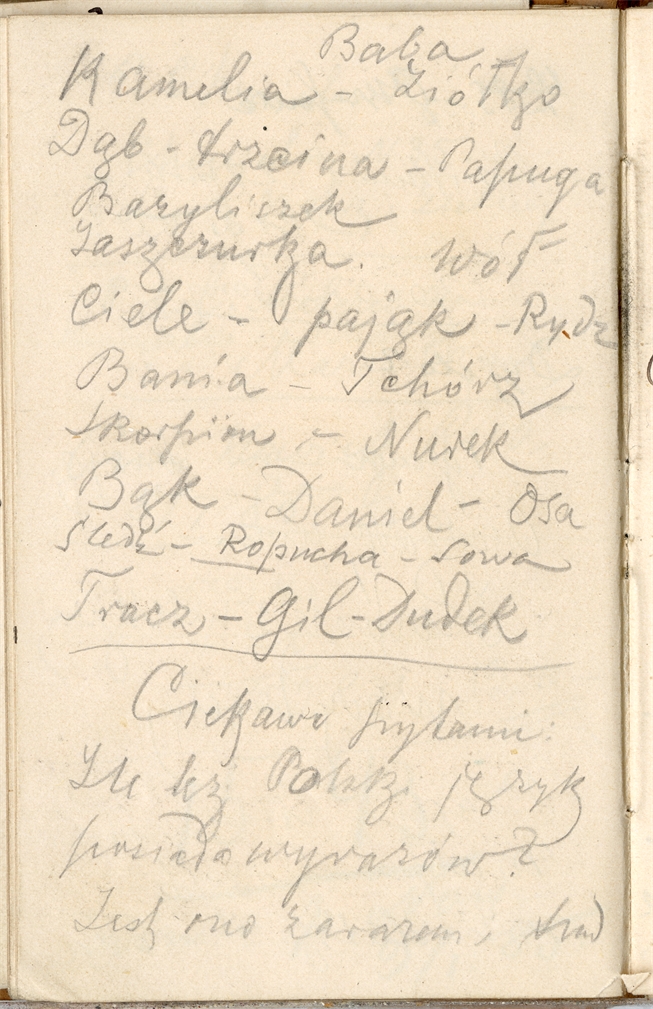 Baba
Kamelia - Ziółko
Dąb - trzcina - Papuga
Bazyliszek
Jaszczurka. Wół
Ciele - pająk - Rydz
Bania - Tchórz
Skorpion - Nurek
Bąk - Daniel - Osa
Śledź - Ropucha - Sowa
Tracz - Gil - Dudek
Ciekawe pytanie:
Ile też Polski język
posiada wyrazów?
Jest ono zarazem i trud